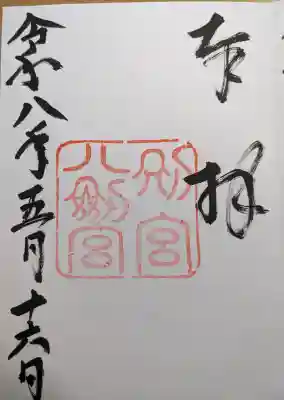 奉拝
別宮
八剣宮
令和八年五月十六日